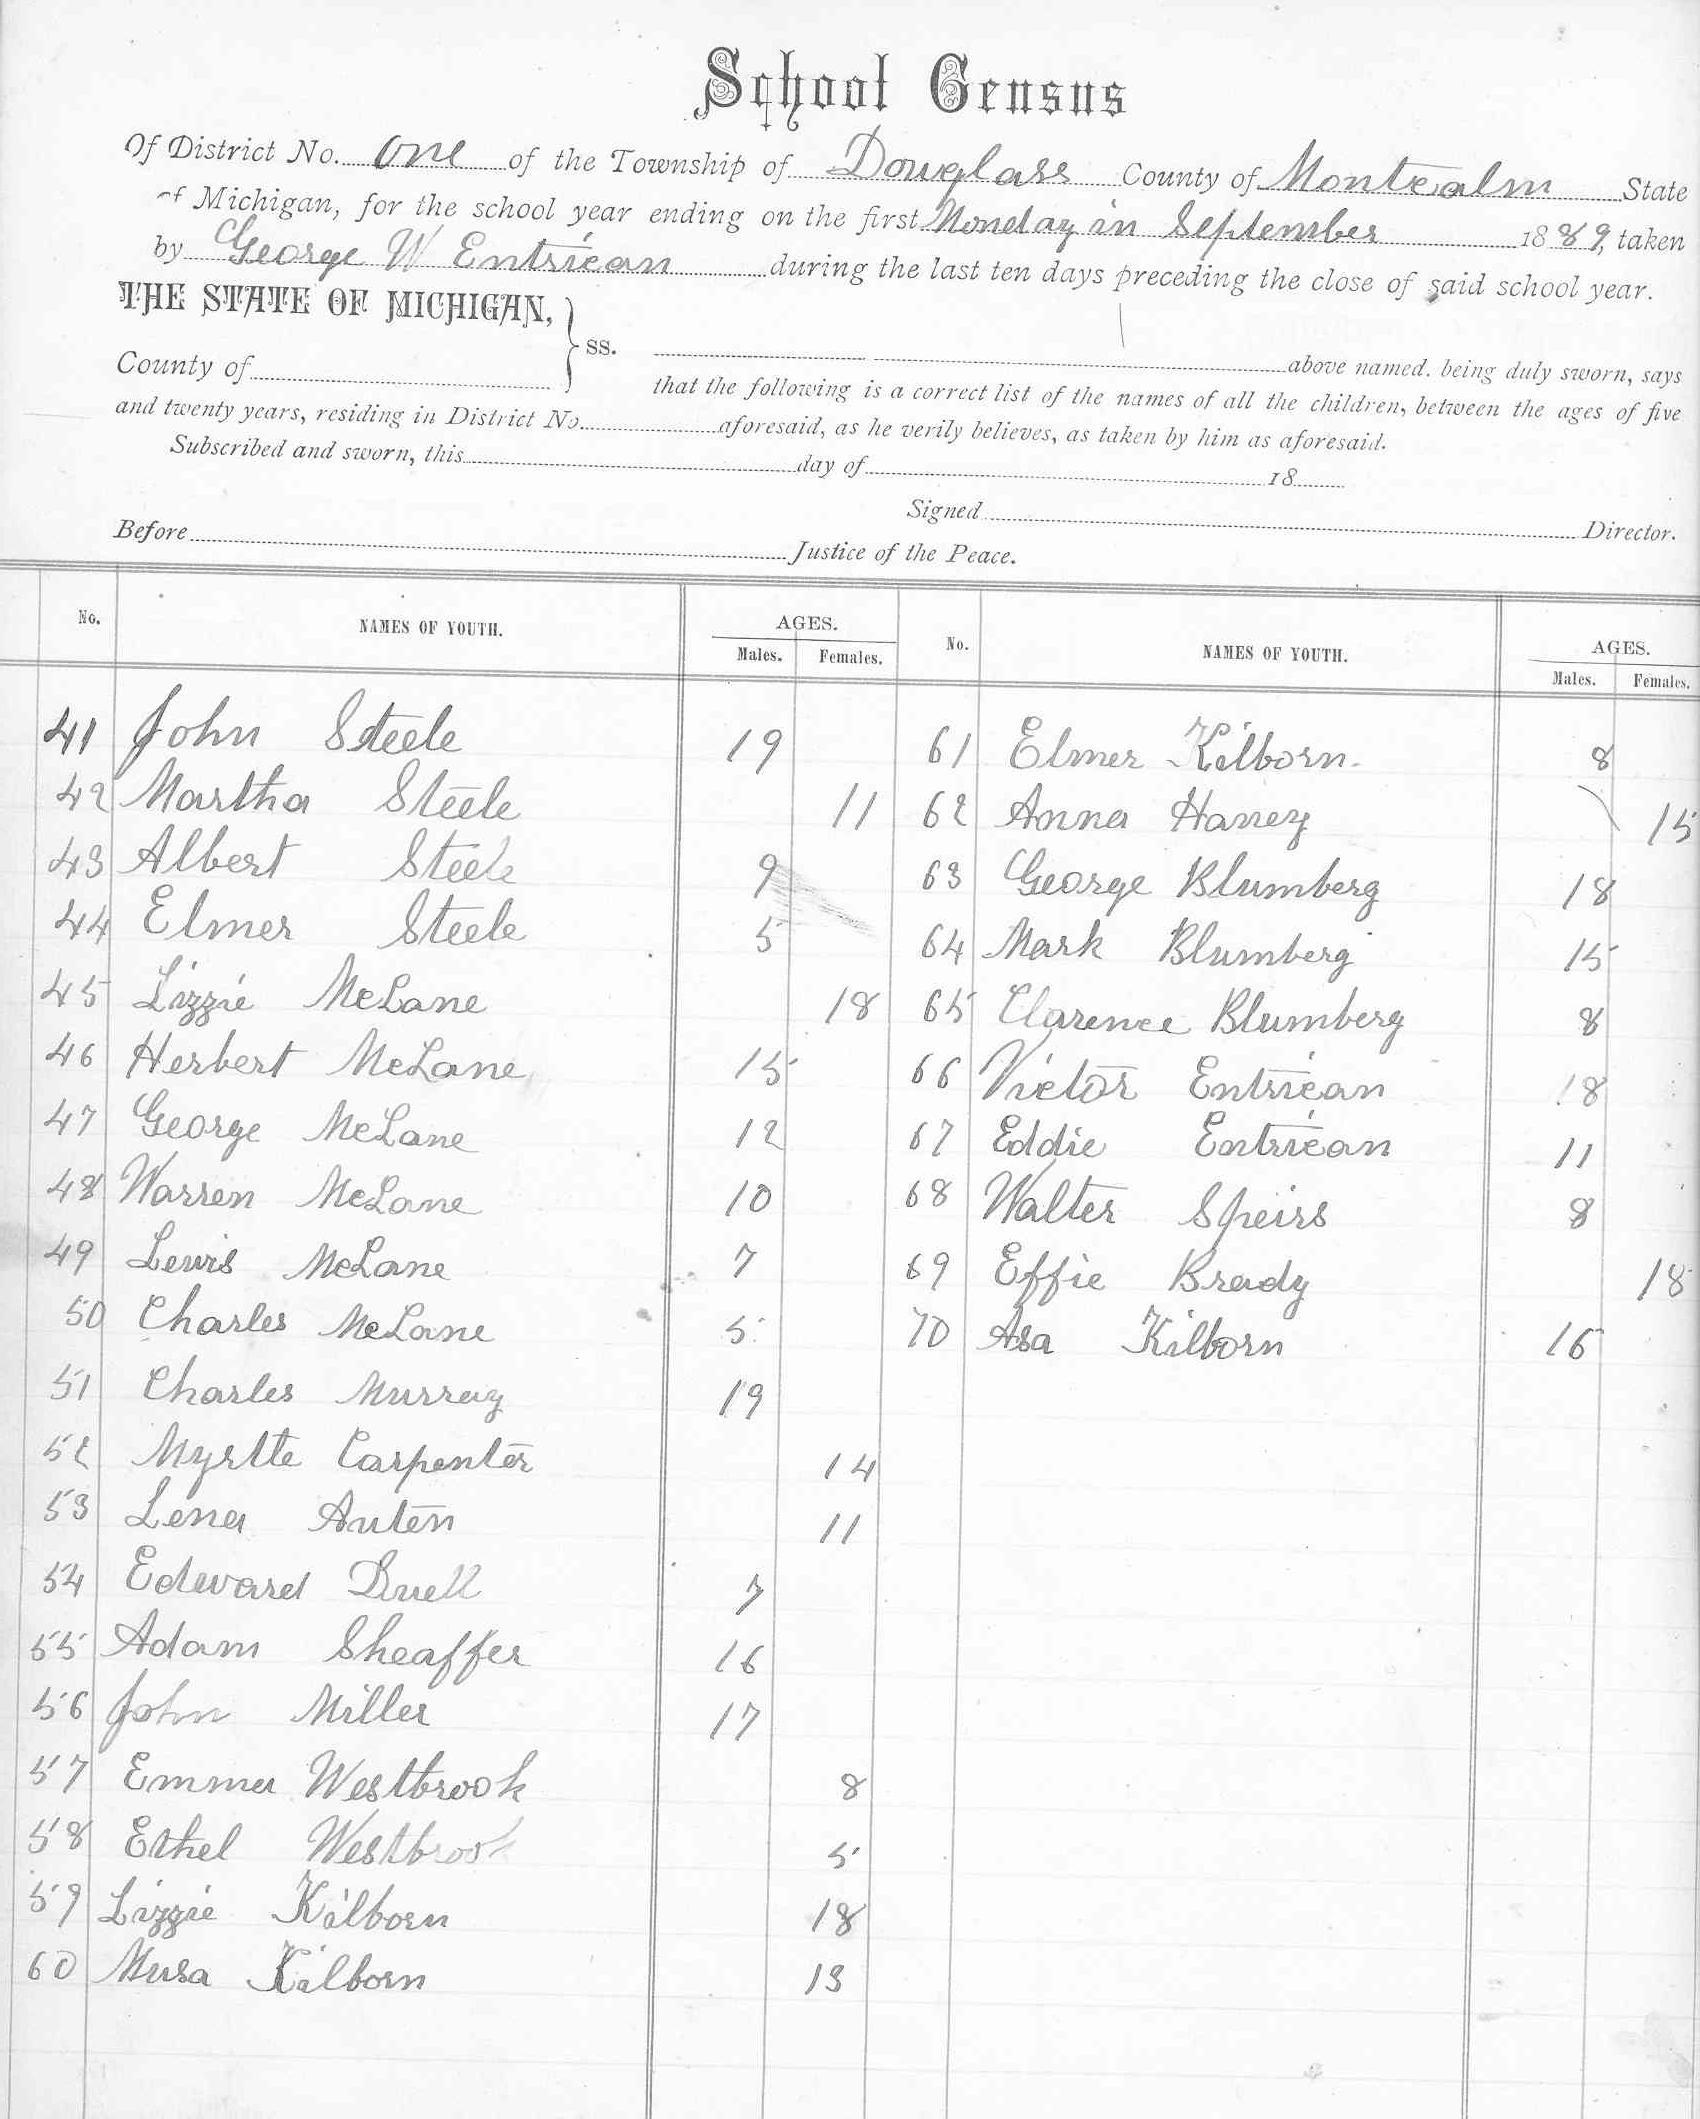 School Census
Of District No. One of the Township of Douglass County of Montcalm State
of Michigan, for the school year ending on the first Monday in September 1889, taken
by George W Entrican during the last ten days preceding the close of said school year.
THE STATE OF MICHIGAN,
ss.
County of
above named. being duly sworn, says
that the following is a correct list of the names of all the children, between the ages of five
and twenty years, residing in District No. aforesaid, as he verily believes, as taken by him as aforesaid.
Subscribed and sworn, this day of 18
Signed Director.
Before Justice of the Peace.
No. NAMES OF YOUTH. AGES. Males. Females.
41 John Steele 19
42 Martha Steele 11
43 Albert Steele 9
44 Elmer Steele 5
45 Lizzie McLane 18
46 Herbert McLane 15
47 George McLane 12
48 Warren McLane 10
49 Lewis McLane 7
50 Charles McLane 5
51 Charles Murray 19
52 Myrtte Carpenter 14
53 Lena Auten 11
54 Edward Buell 7
55 Adam Sheaffer 16
56 John Miller 17
57 Emma Westbrook 8
58 Ethel Westbrook 5
59 Lizzie Kilborn 18
60 Musa Kilborn 13
No. NAMES OF YOUTH. AGES. Males. Females.
61 Elmer Kilborn. 8
62 Anna Haney 15
63 George Blumberg 18
64 Mark Blumberg 15
65 Clarence Blumberg 8
66 Victor Entrican 18
67 Eddie Entrican 11
68 Walter Speirs 8
69 Effie Brady 18
70 Asa Kilborn 16